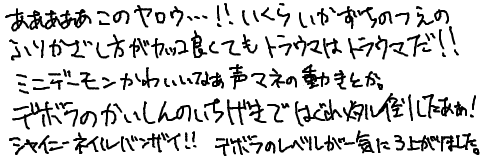 ああああこのヤロウ…!!いくらいかずちのつえの
ふりかざし方がカッコ良くてもトラウマはトラウマだ!!
ミニデーモンかわいいなあ声マネの動きとか。
デボラのかいしんのいちげきではぐれメタル倒したああ!
シャイニーネイルバンザイ!! デボラのレベルが一気に3上がりました。